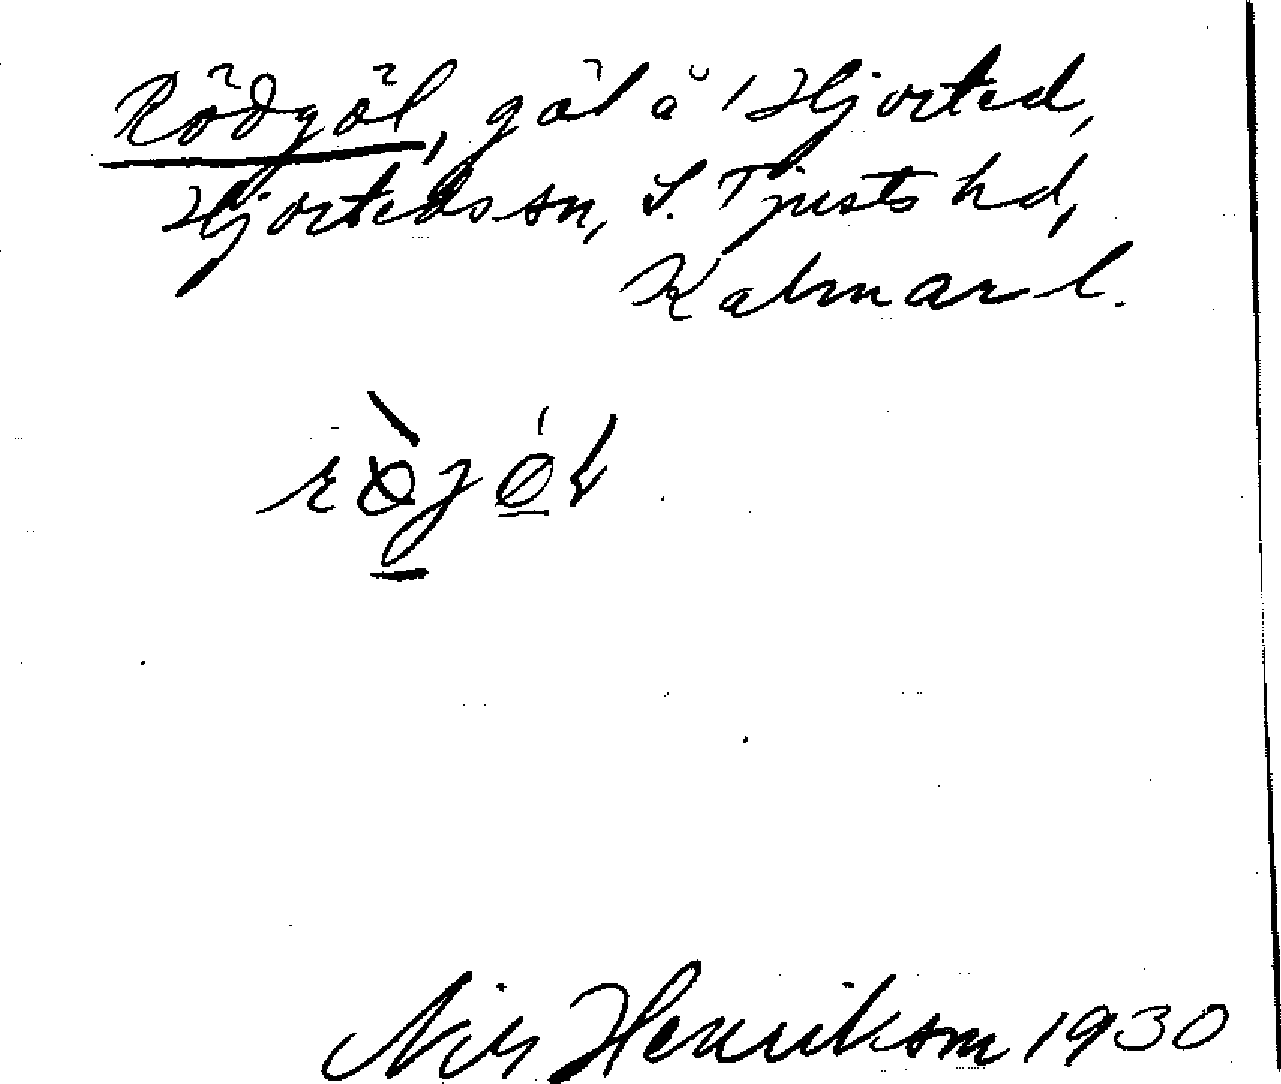 Rödgöl, göl å 1 Hjorted,
Hjorteds sn, S. Tjusts hd,
Kalmar l.
Nils Henrikson 1930